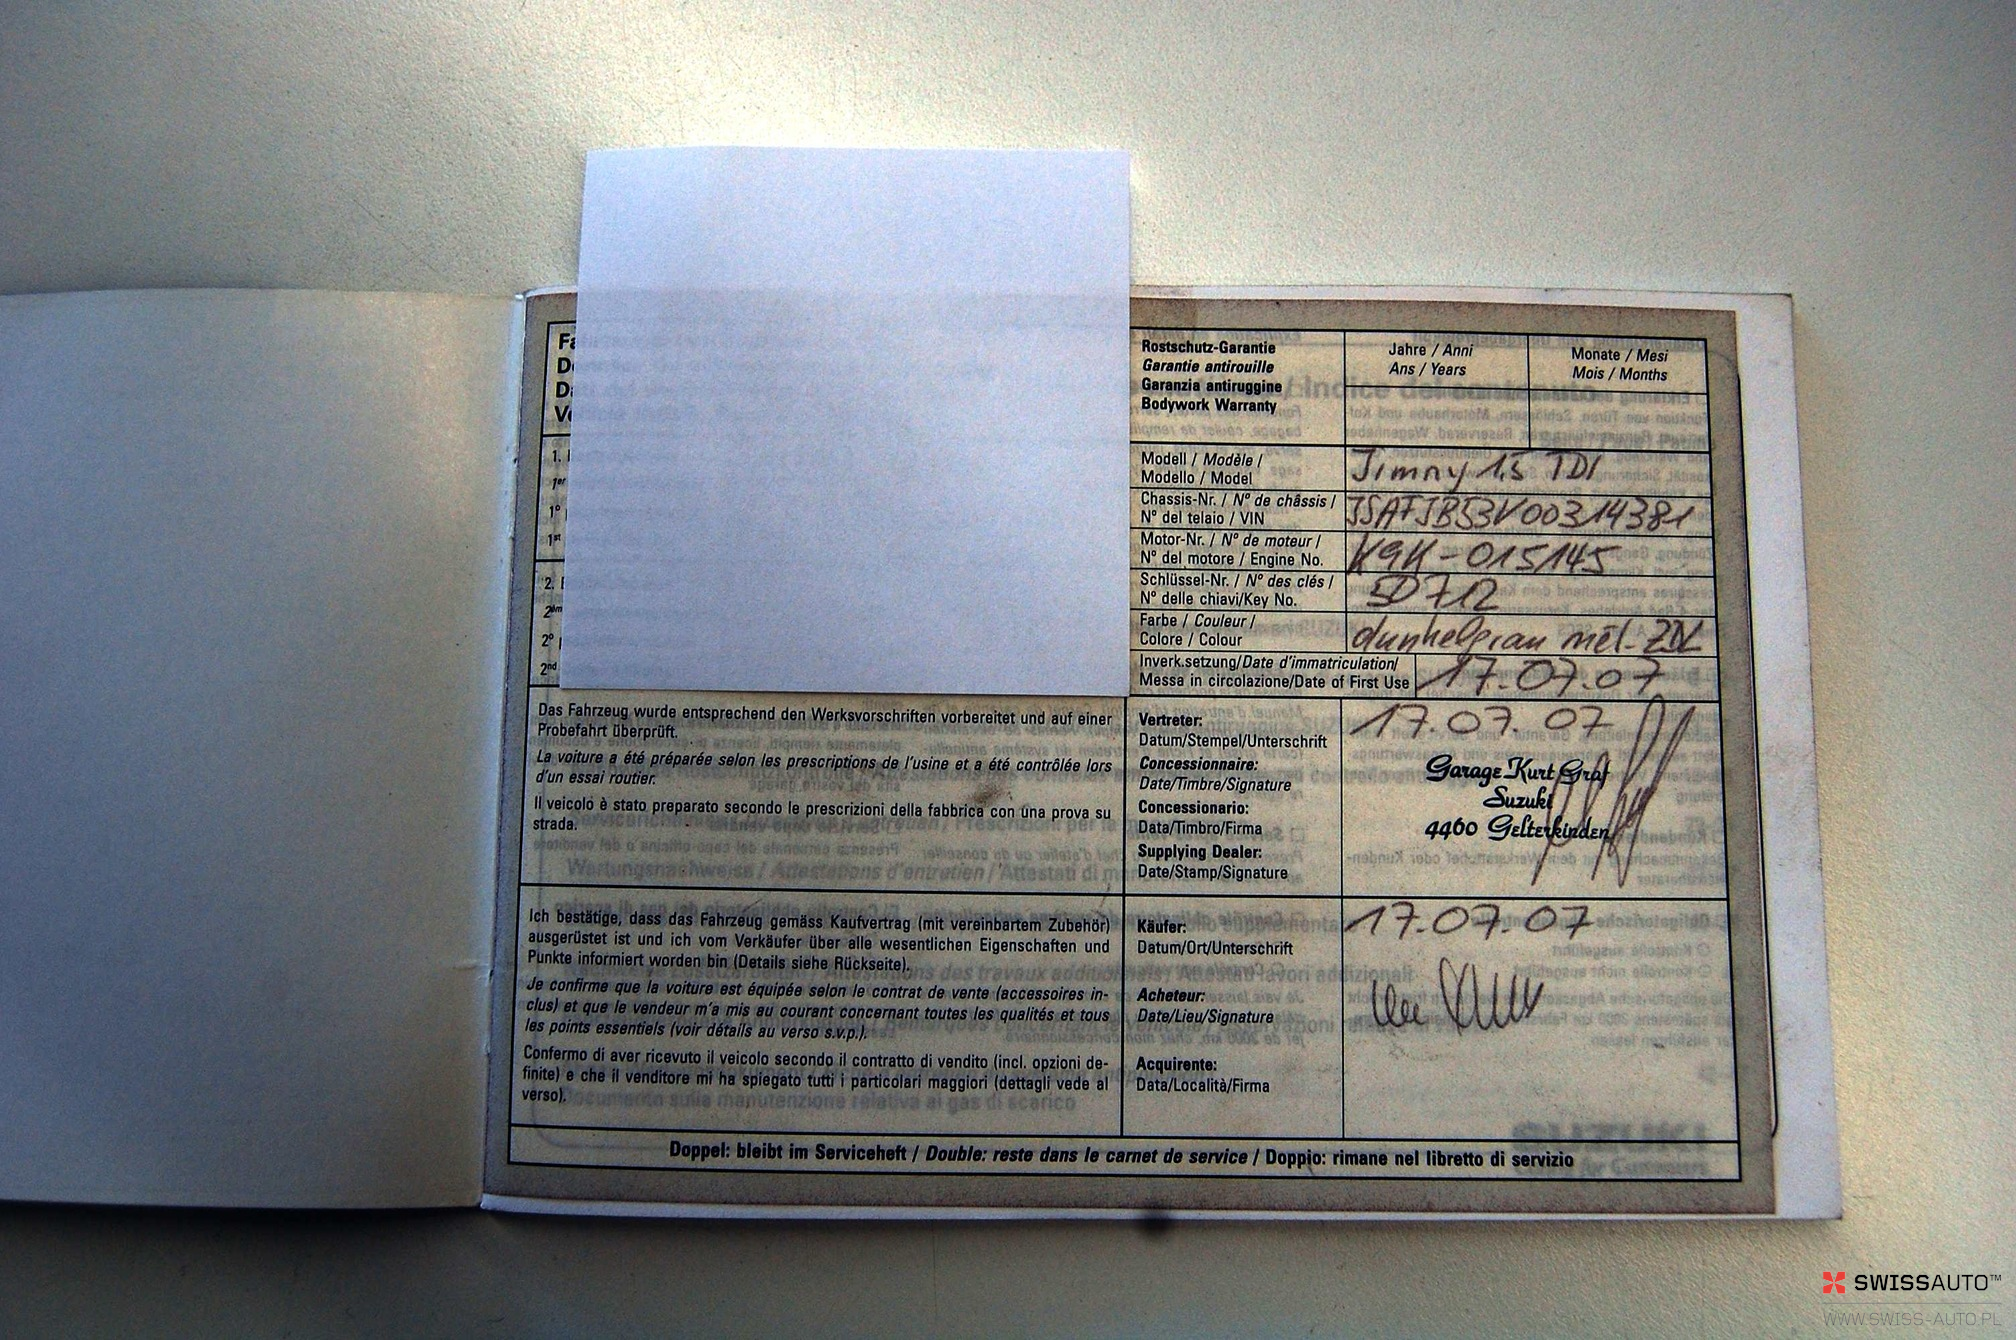 Rostschutz-Garantie
Garantie antirouille
Garanzia antiruggine
Bodywork Warranty
Jahre / Anni
Ans / Years
Monate / Mesi
Mois / Months
1.
1er
1°
1st
2.
2°
2nd
Modell / Modèle /
Modello / Model
Jimny 1,5 TDI
Chassis-Nr. / N° de châssis /
N° del telaio / VIN
JSAFJB53V00314381
Motor-Nr. / N° de moteur /
N° del motore / Engine No.
K9K-015145
Schlüssel-Nr. / N° des clés /
N° delle chiavi/Key No.
5D712
Farbe / Couleur /
Colore / Colour
dunkelgrau mét. ZDL
Inverk.setzung/Date d'immatriculation/
Messa in circolazione/Date of First Use
17.07.07
Das Fahrzeug wurde entsprechend den Werksvorschriften vorbereitet und auf einer
Probefahrt überprüft.
La voiture a été préparée selon les prescriptions de l'usine et a été contrôlée lors
d'un essai routier.
Il veicolo è stato preparato secondo le prescrizioni della fabbrica con una prova su
strada.
Vertreter:
Datum/Stempel/Unterschrift
Concessionnaire:
Date/Timbre/Signature
Concessionario:
Data/Timbro/Firma
Supplying Dealer:
Date/Stamp/Signature
17.07.07
Garage Kurt Graf
Suzuki
4460 Gelterkinden
Ich bestätige, dass das Fahrzeug gemäss Kaufvertrag (mit vereinbartem Zubehör)
ausgerüstet ist und ich vom Verkäufer über alle wesentlichen Eigenschaften und
Punkte informiert worden bin (Details siehe Rückseite).
Je confirme que la voiture est équipée selon le contrat de vente (accessoires in-
clus) et que le vendeur m'a mis au courant concernant toutes les qualités et tous
les points essentiels (voir détails au verso s.v.p.).
Confermo di aver ricevuto il veicolo secondo il contratto di vendito (incl. opzioni de-
finite) e che il venditore mi ha spiegato tutti i particolari maggiori (dettagli vede al
verso).
Käufer:
Datum/Ort/Unterschrift
Acheteur:
Date/Lieu/Signature
Acquirente:
Data/Località/Firma
17.07.07
Doppel: bleibt im Serviceheft / Double: reste dans le carnet de service / Doppio: rimane nel libretto di servizio
SWISSAUTO™
WWW.SWISS-AUTO.PL